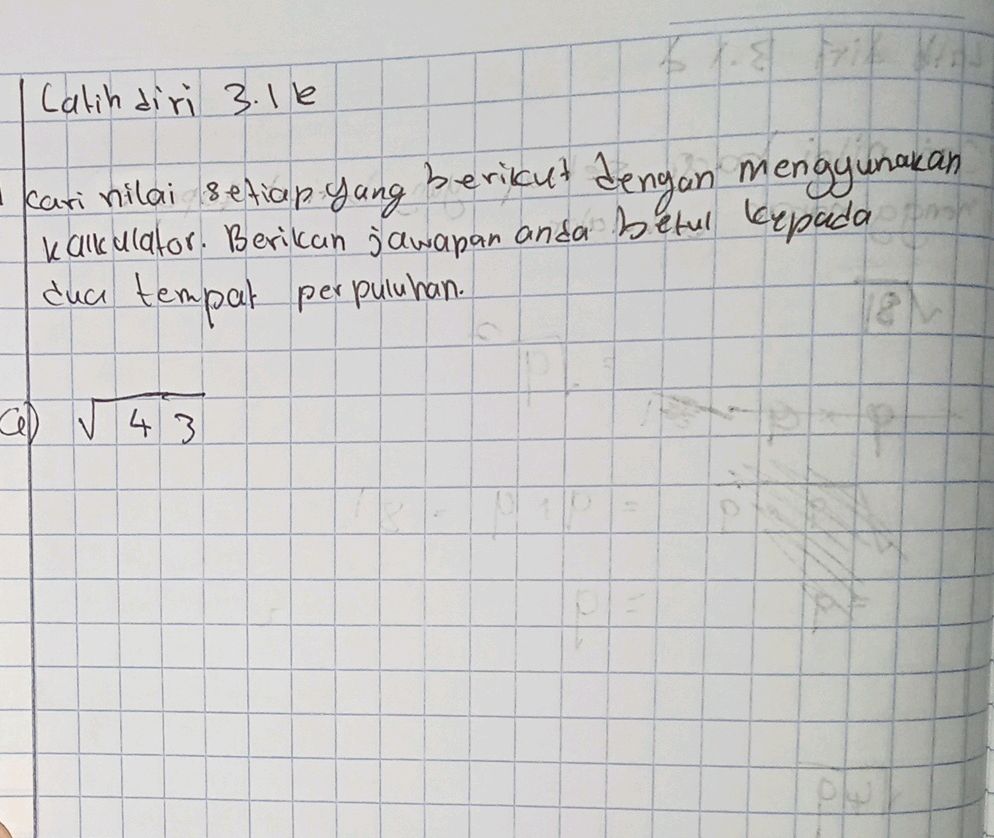 Latih diri 3.1 e
cari nilai setiap yang berikut dengan menggunakan
kalkulator. Berikan jawapan anda betul kepada
dua tempat perpuluhan.
a) √43